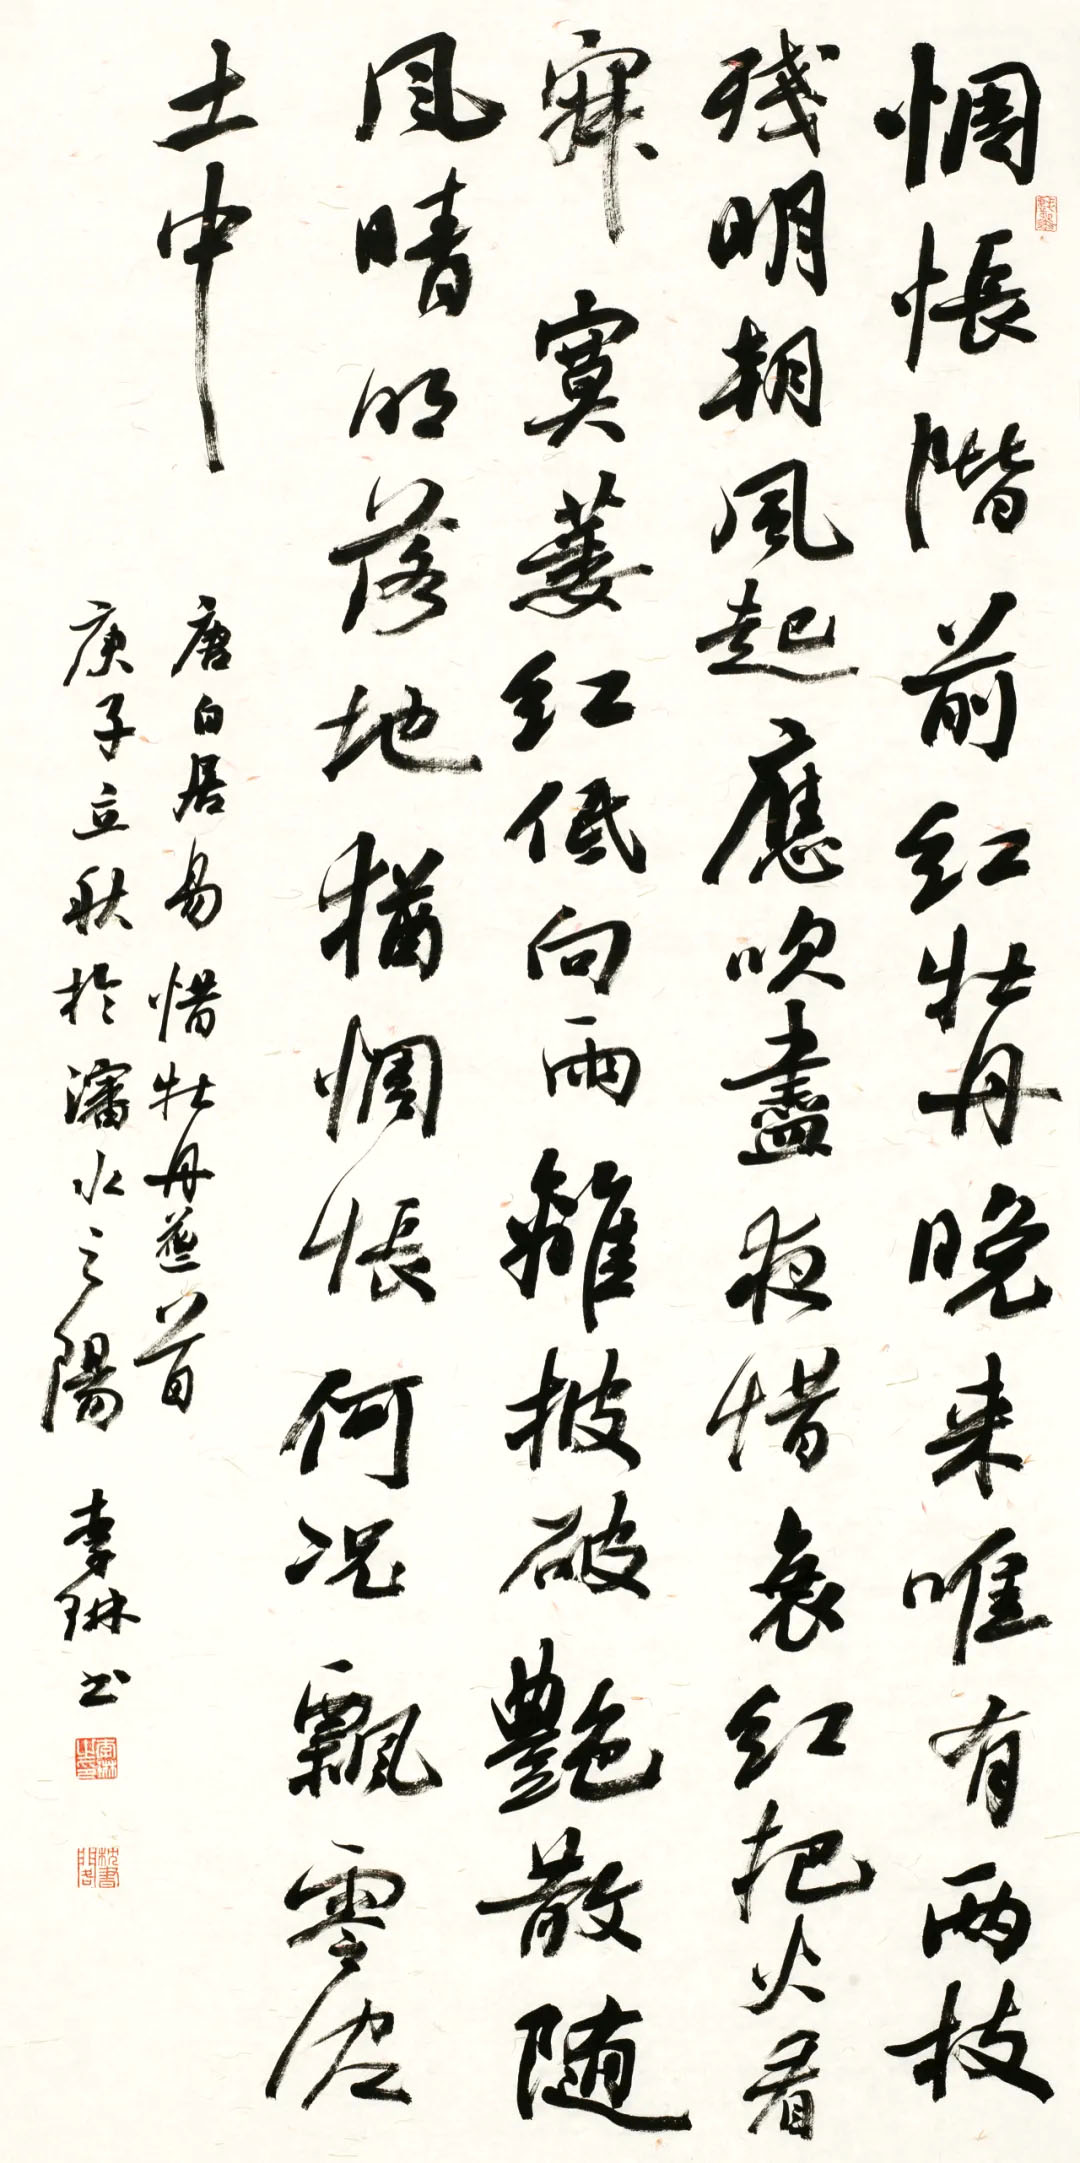 惆悵階前紅牡丹晚来唯有兩枝
残明朝風起應吹盡夜惜衰紅把火看
寂寞萎紅低向雨離披破艷散随
風晴明落地猶惆悵何况飄零泥
土中
唐白居易惜牡丹花二首
庚子立秋於瀋水之陽 李琳书